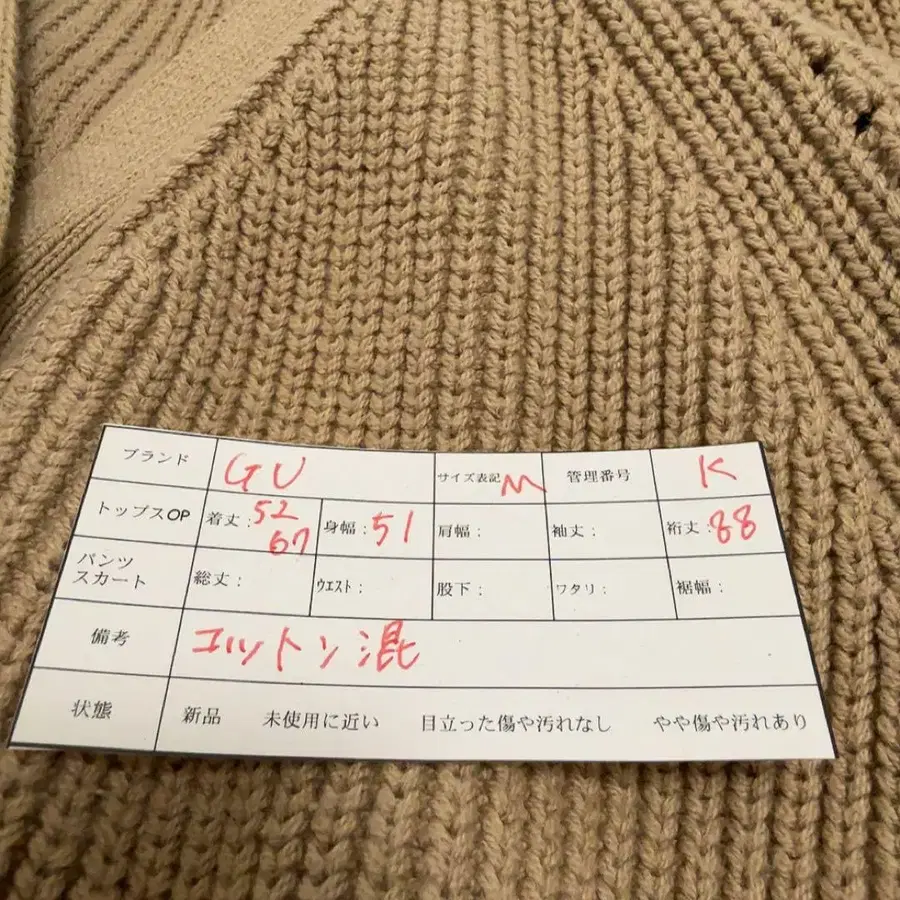 ブランド GU サイズ表記 M 管理番号 K
トップスOP 着丈:52 67 身幅:51 肩幅: 袖丈: 裄丈:88
パンツ スカート 総丈: ウエスト: 股下: ワタリ: 裾幅:
備考 コットン混
状態 新品 未使用に近い 目立った傷や汚れなし やや傷や汚れあり